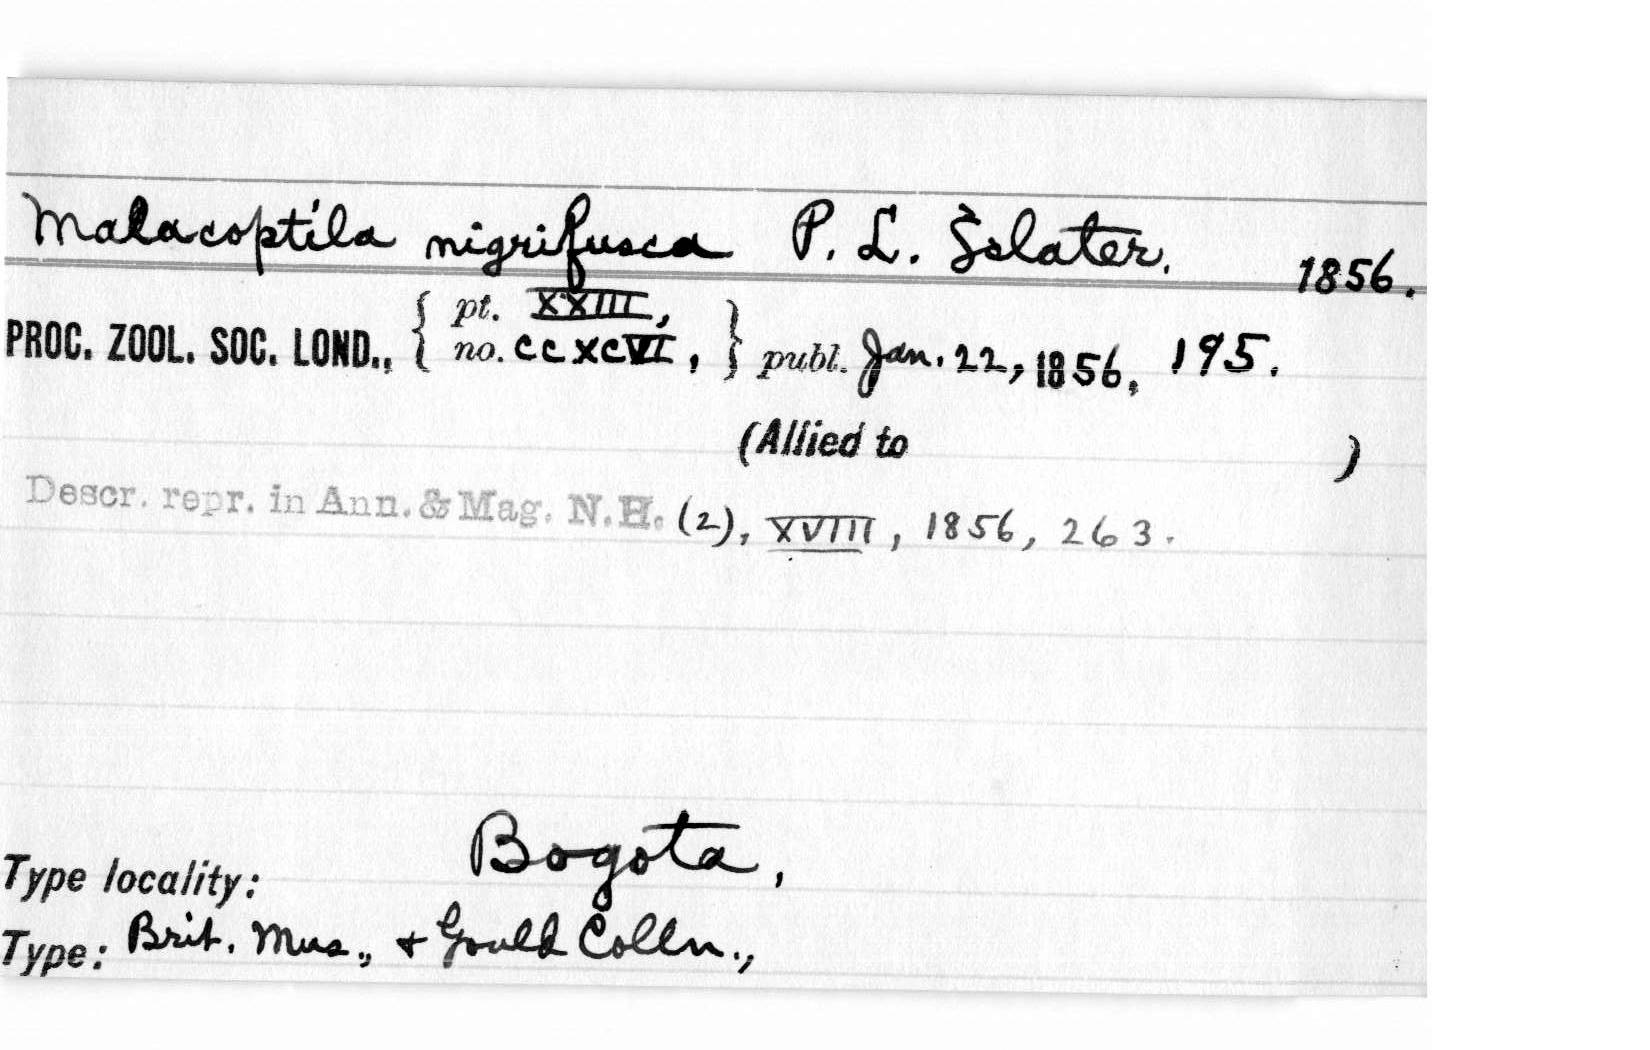 Malacoptila nigrifusca P. L. Sclater. 1856.
PROC. ZOOL. SOC. LOND., { pt. XXIII, no. CCXCVI, } publ. Jan. 22, 1856, 195.
(Allied to )
Descr. repr. in Ann. & Mag. N.H. (2), XVIII, 1856, 263.
Type locality: Bogota,
Type: Brit. Mus., + Gould Colln.,